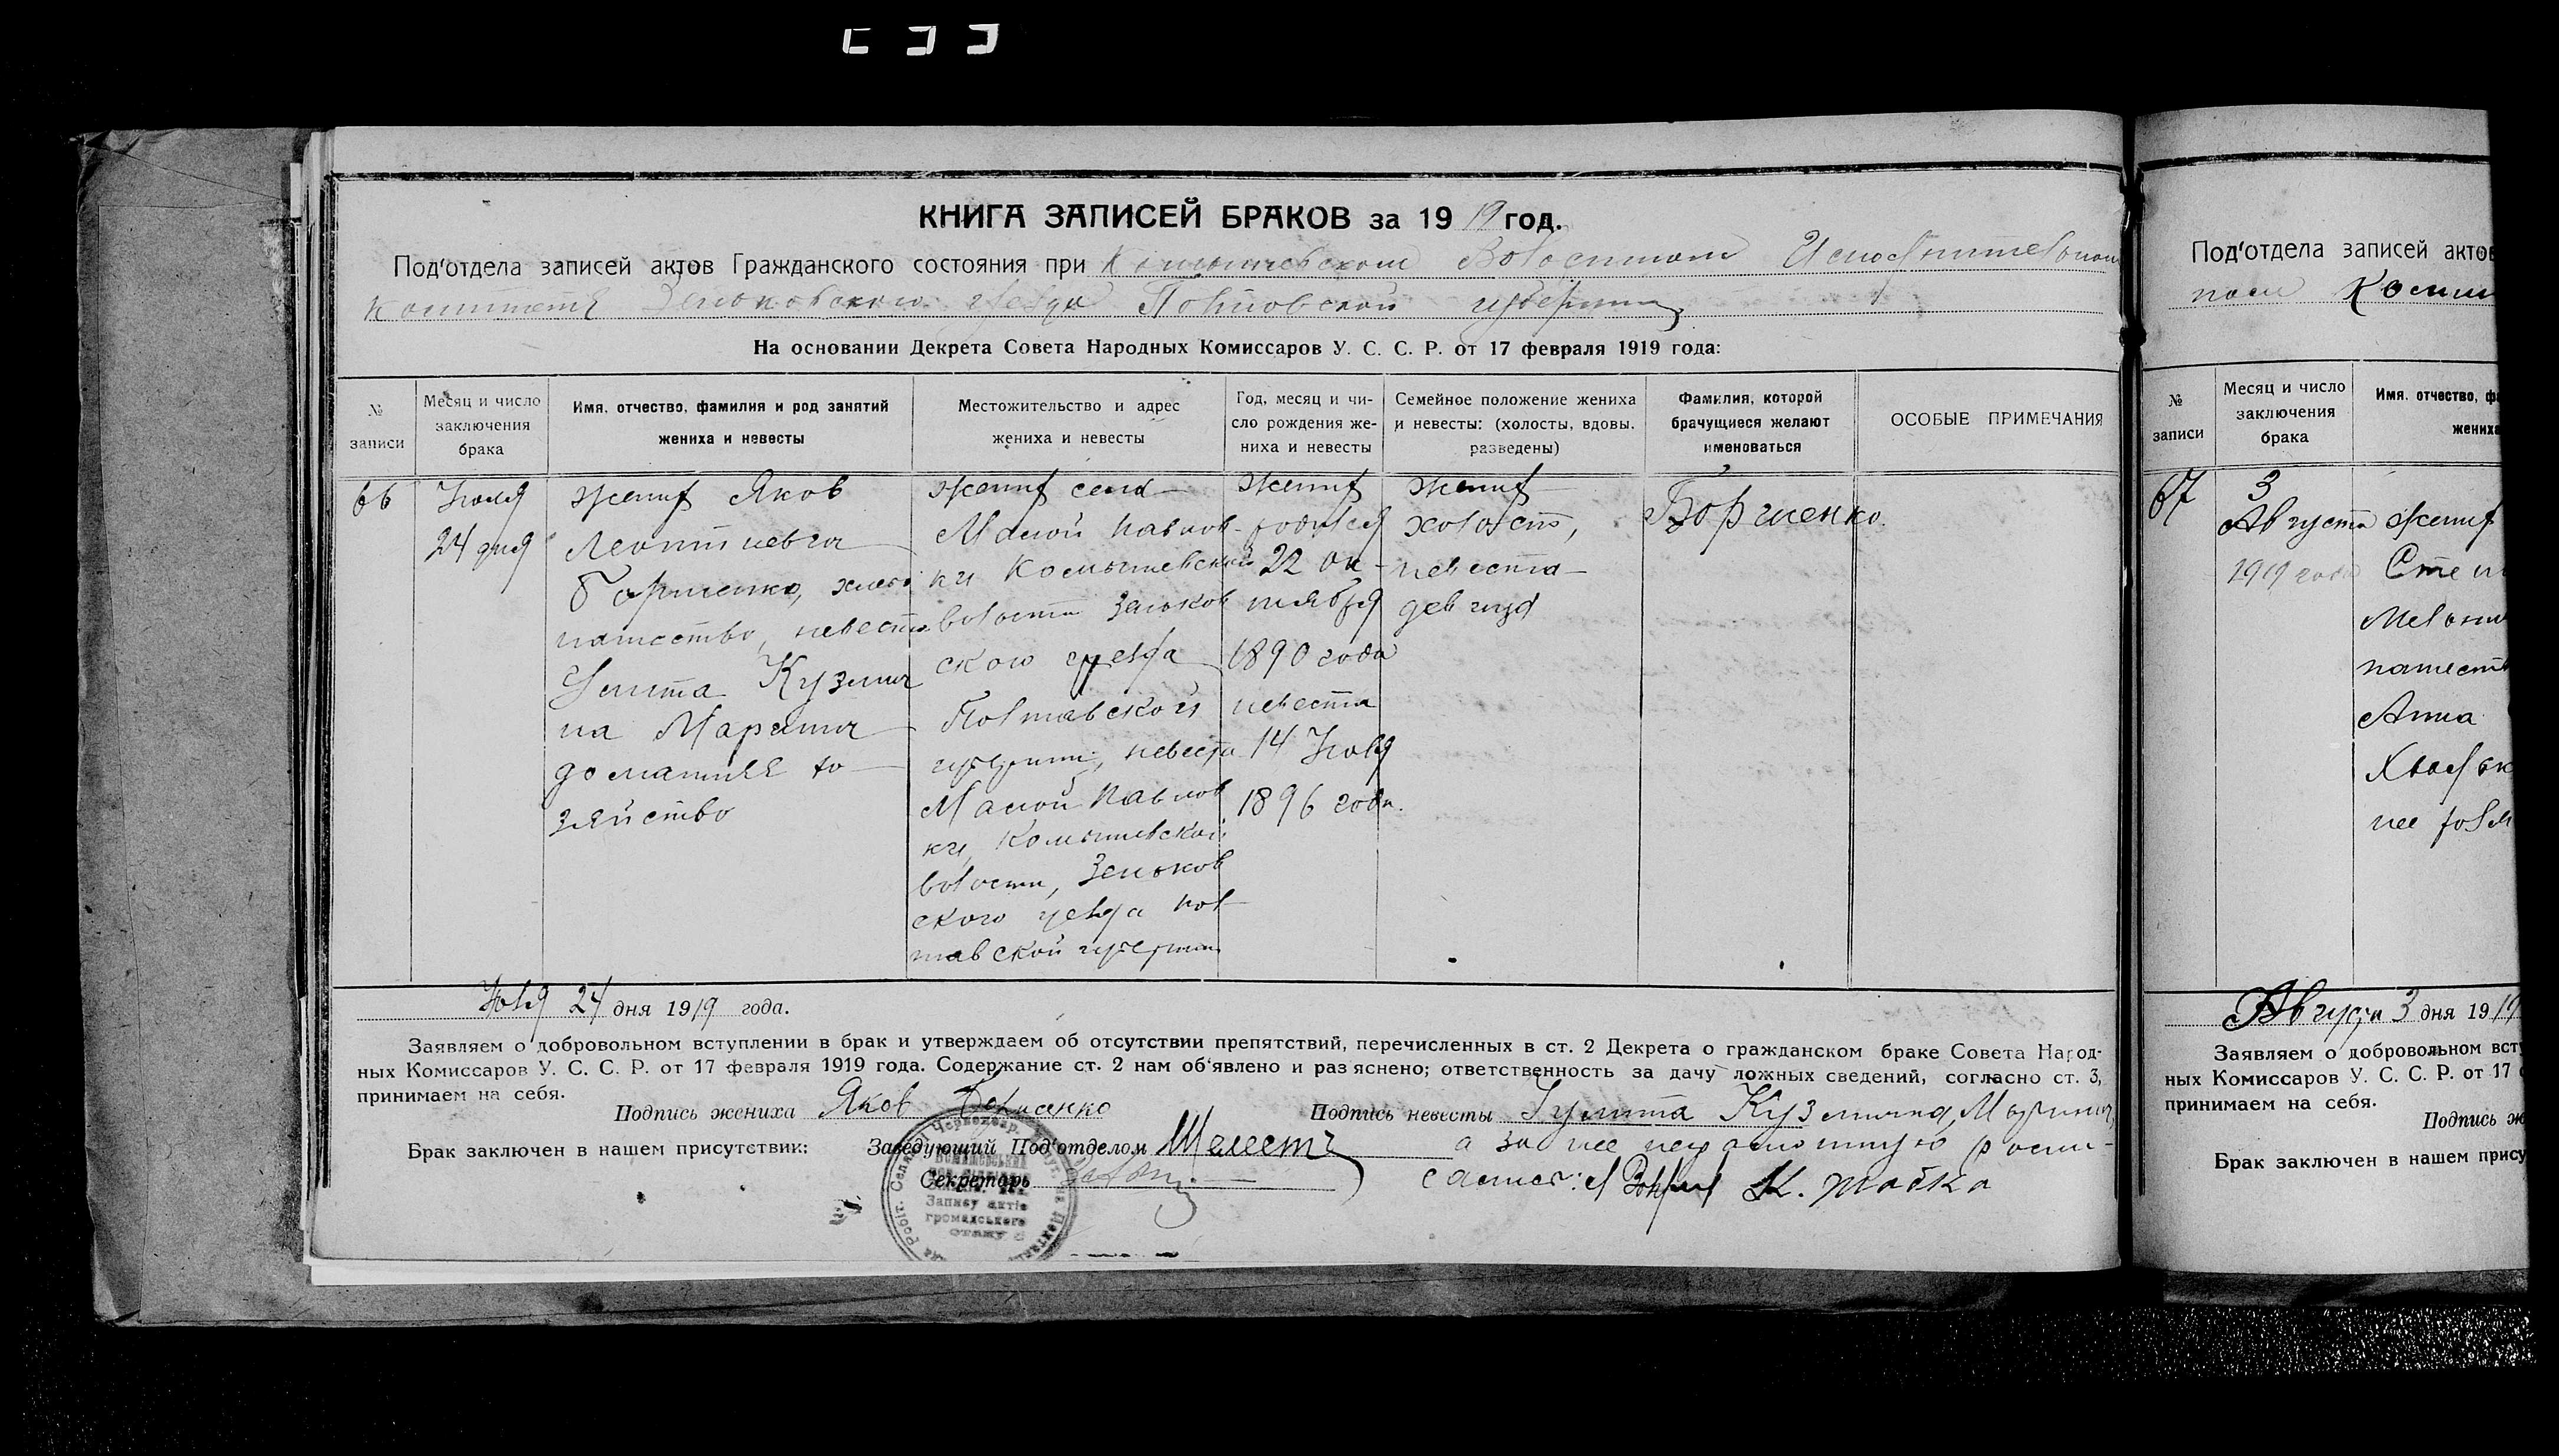 КНИГА ЗАПИСЕЙ БРАКОВ за 1919 год.
Под'отдела записей актов Гражданского состояния при Комышевском Волостном Исполнительном
Комитете Зеньковского уезда Полтавской губернии
На основании Декрета Совета Народных Комиссаров У. С. С. Р. от 17 февраля 1919 года:
№ записи
Месяц и число заключения брака
Имя, отчество, фамилия и род занятий жениха и невесты
Местожительство и адрес жениха и невесты
Год, месяц и число рождения жениха и невесты
Семейное положение жениха и невесты: (холосты, вдовы, разведены)
Фамилия, которой брачущиеся желают именоваться
ОСОБЫЕ ПРИМЕЧАНИЯ
66
Июля
24 дня
жених Яков
Леонтиевич
Борисенко, хлебо
пашество, невеста
Улита Кузмин
на Марина
домашнее хо
зяйство
жених села
Малой Павлов-
ки Комышевской
волости Зеньков
ского уезда
Полтавской
губернии, невеста
Малой Павлов
ки, Комышевской
волости, Зеньков
ского уезда Пол
тавской губернии
жених
родился
22 ок-
тября
1890 года
невеста
14 Июля
1896 года.
жених
холост,
невеста
девица
Борисенко.
Июля 24 дня 1919 года.
Заявляем о добровольном вступлении в брак и утверждаем об отсутствии препятствий, перечисленных в ст. 2 Декрета о гражданском браке Совета Народ-
ных Комиссаров У. С. С. Р. от 17 февраля 1919 года. Содержание ст. 2 нам об'явлено и раз'яснено; ответственность за дачу ложных сведений, согласно ст. 3,
принимаем на себя.
Подпись жениха Яков Борисенко
Подпись невесты Гулита Кузминна Марина,
Брак заключен в нашем присутствии: Заведующий Под'отделом Шелест
а за нее неграмотную роспи-
Секретарь
сался: К. Товка
Запису актів
громадського
стану
Под'отдела записей актов
ном Комит
№ записи
Месяц и число заключения брака
Имя, отчество, фа
жениха
67
3
Августа
1919 года
жених
Степ
пашест
Анна
Августа 3 дня 1919
Заявляем о добровольном вст
ных Комиссаров У. С. С. Р. от 17
принимаем на себя.
Подпись ж
Брак заключен в нашем прису